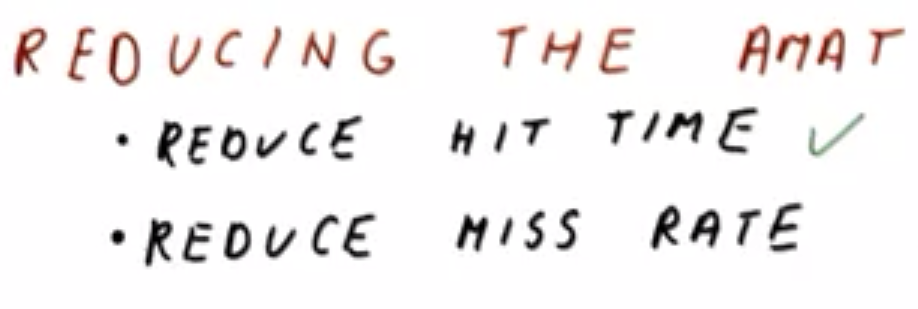 REDUCING THE AMAT
• REDUCE HIT TIME ✓
• REDUCE MISS RATE